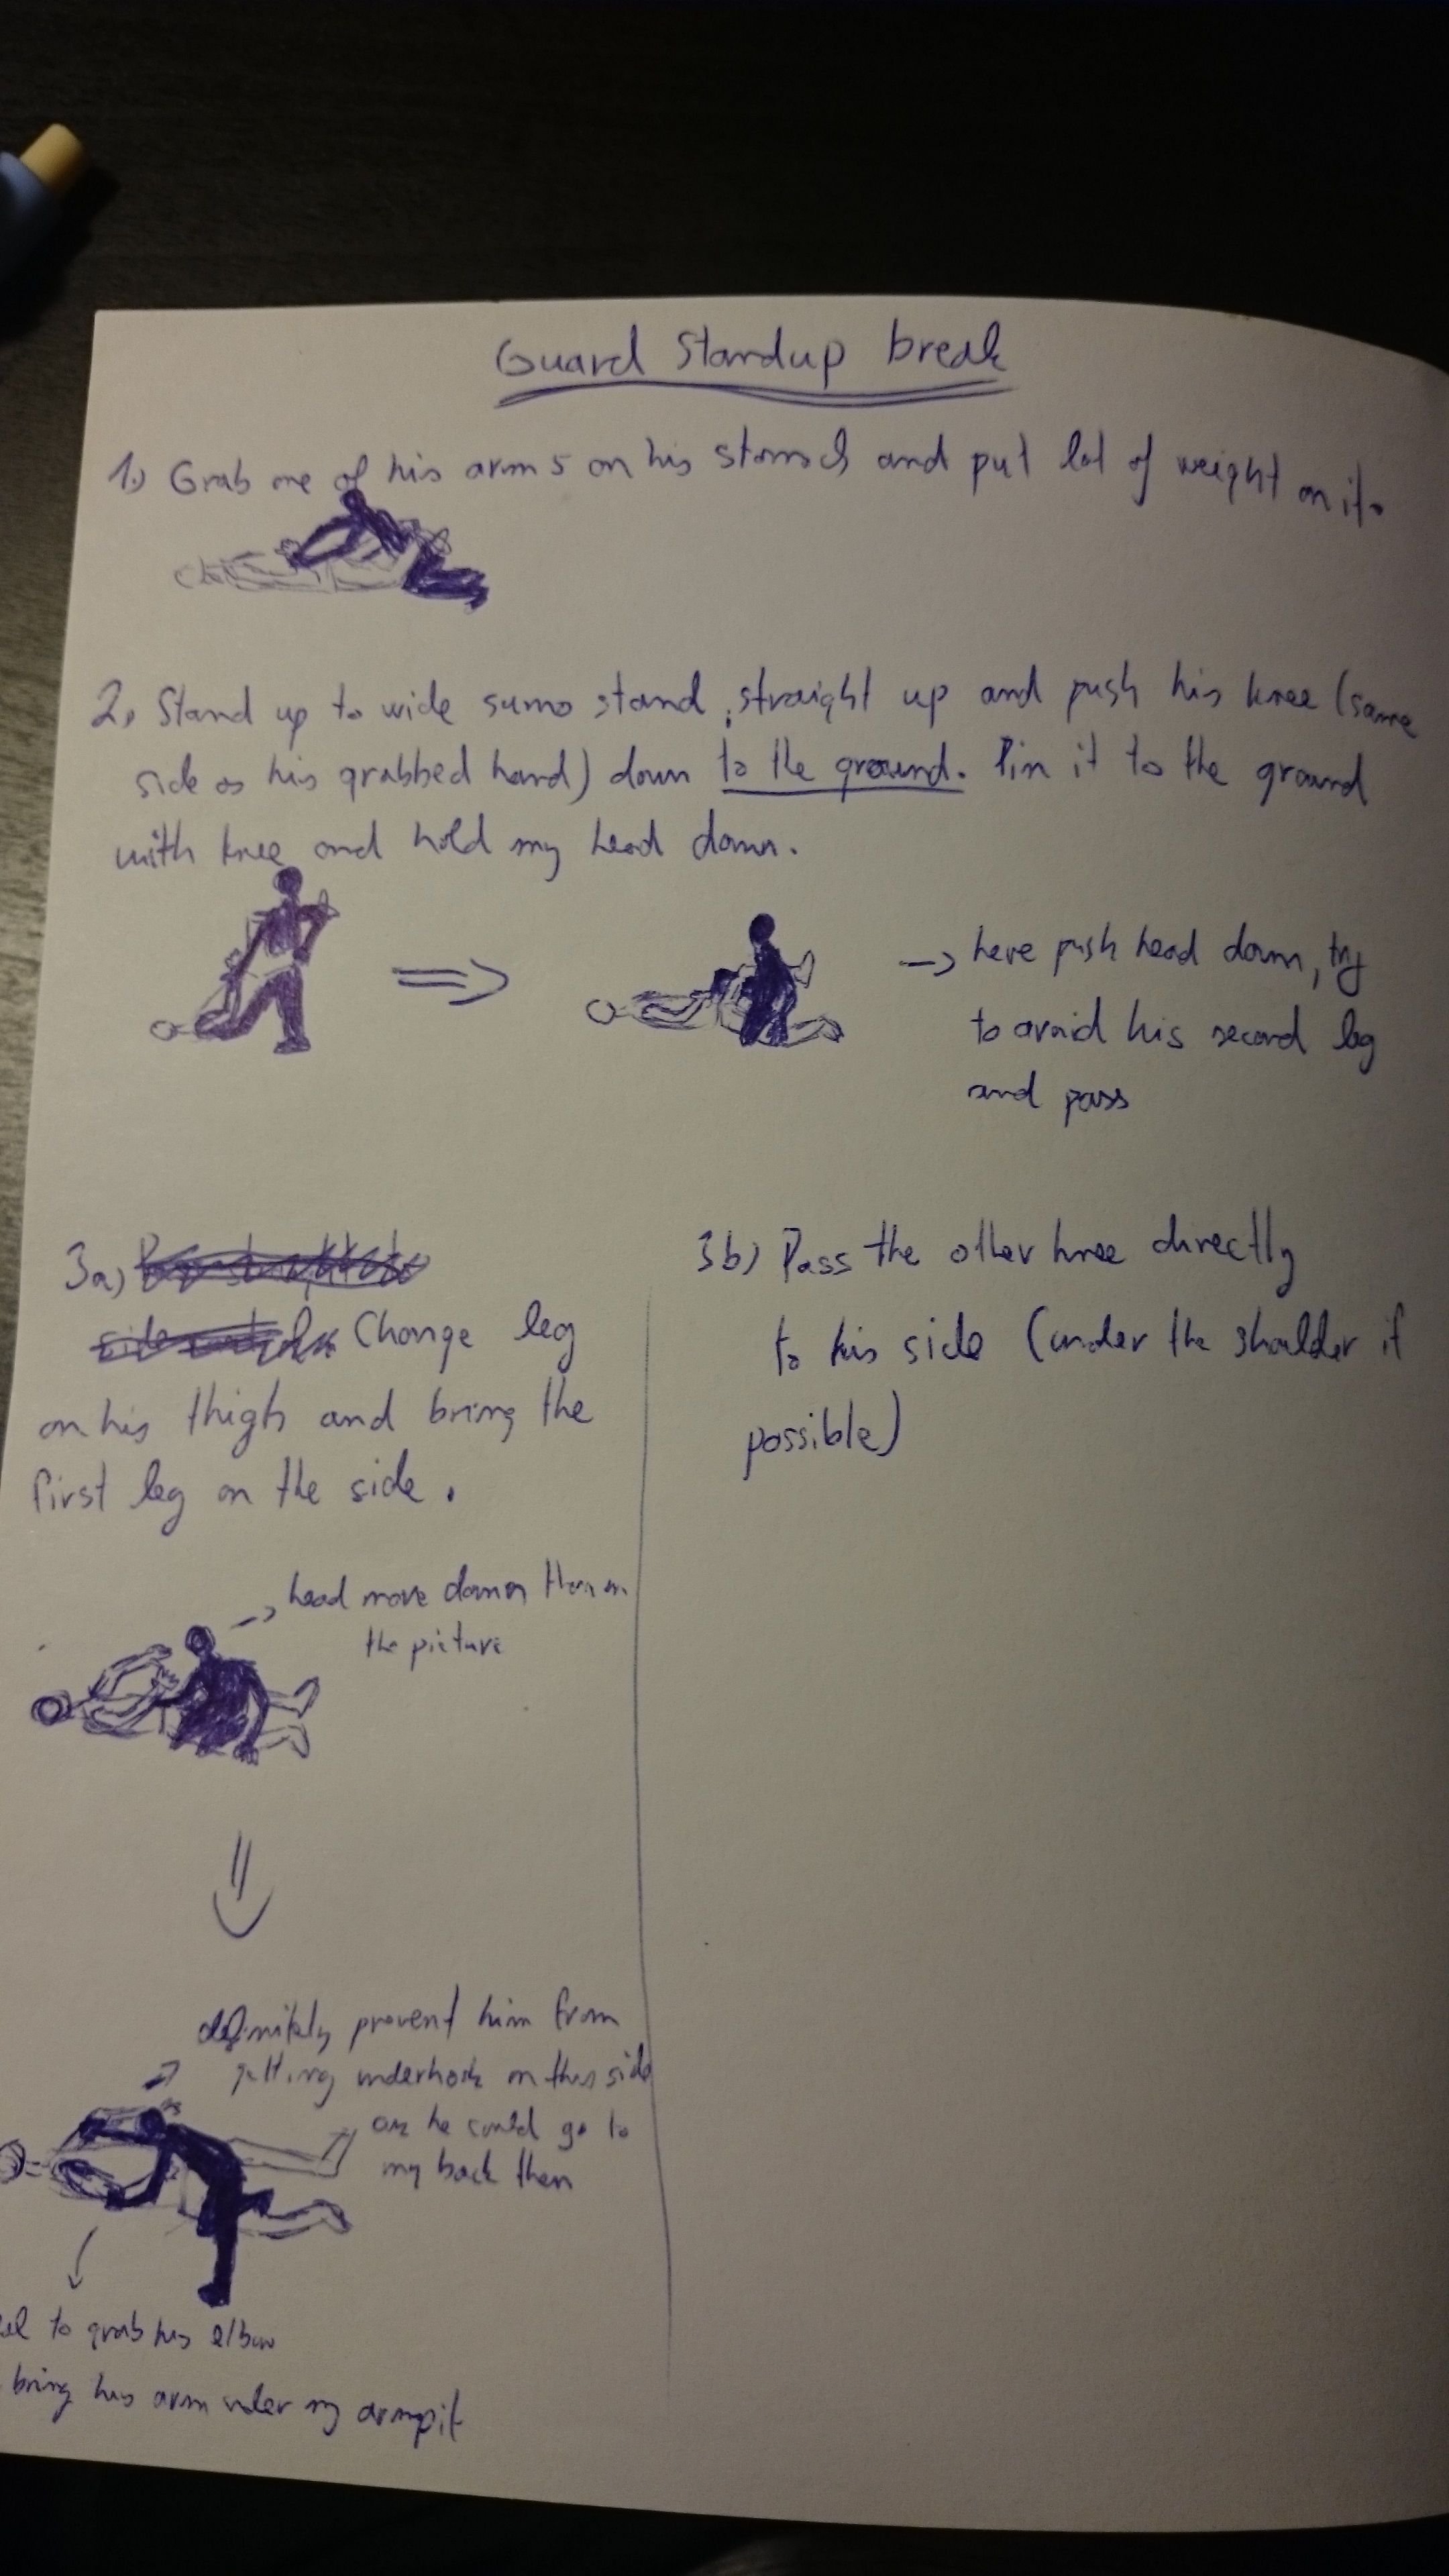 Guard Standup break
1.) Grab one of his arms on his stomach and put lot of weight on it.
2, Stand up to wide sumo stand, straight up and push his knee (same
side as his grabbed hand) down to the ground. Pin it to the ground
with knee and hold my head down.
=> -> here push head down, try
to avoid his second leg
and pass
3a)
Change leg
on his thigh and bring the
first leg on the side.
-> head more down than on
the picture
3b) Pass the other knee directly
to his side (under the shoulder if
possible)
definitely prevent him from
getting underhook on this side
he could go to
my back then
to grab his elbow
bring his arm under my armpit